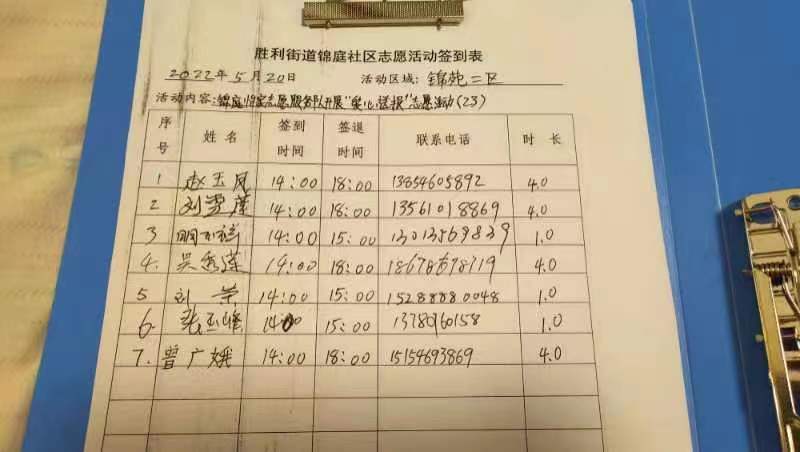 胜利街道锦庭社区志愿活动签到表
2022年5月20日 活动区域: 锦苑二区
活动内容: 锦庭 志愿服务队开展"爱心送报"志愿活动(23)
序号 姓名 签到时间 签退时间 联系电话 时长
1 赵玉凤 14:00 18:00 13854605892 4.0
2 刘雪莲 14:00 18:00 13561018869 4.0
3 14:00 15:00 13013569839 1.0
4. 吴秀莲 14:00 18:00 18678678719 4.0
5 刘 14:00 15:00 15288880048 1.0
6. 张玉 1400 15:00 1378960158 1.0
7. 曾广娥 14:00 18:00 15154693869 4.0